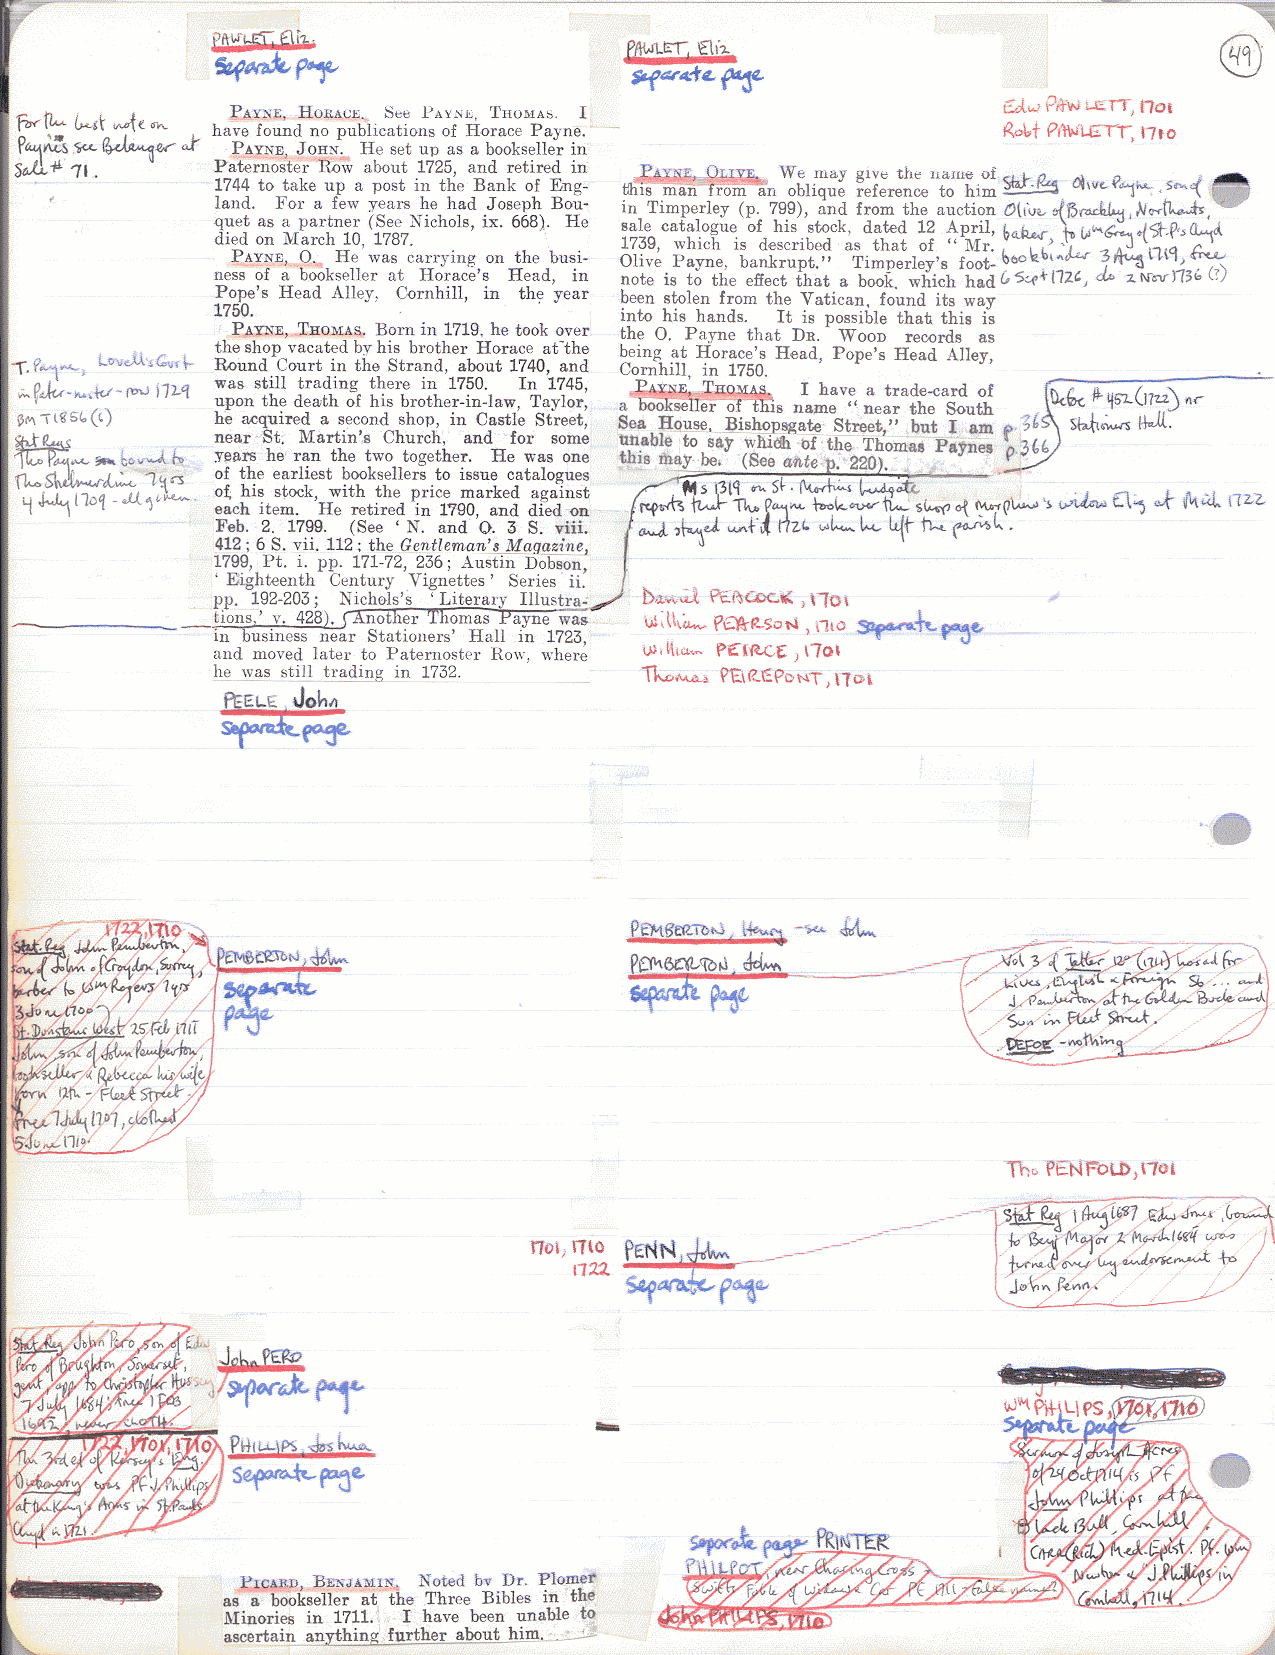 PAWLET, Eliz.
Separate page
PAWLET, Eliz
Separate page
49
Edw PAWLETT, 1701
Robt PAWLETT, 1710
For the best note on
Paynes see Belanger at
Sale # 71.
PAYNE, HORACE. See PAYNE, THOMAS. I
have found no publications of Horace Payne.
PAYNE, JOHN. He set up as a bookseller in
Paternoster Row about 1725, and retired in
1744 to take up a post in the Bank of Eng-
land. For a few years he had Joseph Bou-
quet as a partner (See Nichols, ix. 668). He
died on March 10, 1787.
PAYNE, O. He was carrying on the busi-
ness of a bookseller at Horace's Head, in
Pope's Head Alley, Cornhill, in the year
1750.
PAYNE, THOMAS. Born in 1719, he took over
the shop vacated by his brother Horace at the
Round Court in the Strand, about 1740, and
was still trading there in 1750. In 1745,
upon the death of his brother-in-law, Taylor,
he acquired a second shop, in Castle Street,
near St. Martin's Church, and for some
years he ran the two together. He was one
of the earliest booksellers to issue catalogues
of his stock, with the price marked against
each item. He retired in 1790, and died on
Feb. 2, 1799. (See ' N. and Q. 3 S. viii.
412 ; 6 S. vii. 112 ; the Gentleman's Magazine,
1799, Pt. i. pp. 171-72, 236 ; Austin Dobson,
' Eighteenth Century Vignettes ' Series ii.
pp. 192-203 ; Nichols's ' Literary Illustra-
tions,' v. 428). Another Thomas Payne was
in business near Stationers' Hall in 1723,
and moved later to Paternoster Row, where
he was still trading in 1732.
T. Payne, Lovell's Court
in Pater-noster-row 1729
BM T1856 (6)
Stat Regs
Tho Payne son bound to
Tho Shelmerdine 7 yrs
4 July 1709 -
PEELE, John
Separate page
PAYNE, OLIVE. We may give the name of
this man from an oblique reference to him
in Timperley (p. 799), and from the auction
sale catalogue of his stock, dated 12 April,
1739, which is described as that of " Mr.
Olive Payne, bankrupt." Timperley's foot-
note is to the effect that a book, which had
been stolen from the Vatican, found its way
into his hands. It is possible that this is
the O. Payne that DR. WOOD records as
being at Horace's Head, Pope's Head Alley,
Cornhill, in 1750.
PAYNE, THOMAS. I have a trade-card of
a bookseller of this name " near the South
Sea House, Bishopsgate Street," but I am
unable to say which of the Thomas Paynes
this may be. (See ante p. 220).
Stat. Reg Olive Payne, son of
Olive of Brackley, Northants,
baker, to Wm Gray of St. P's Chyd
bookbinder 3 Aug 1719, free
6 Sept 1726, do 2 Nov 1736 (?)
p. 365
p. 366
Defoe # 452 (1722) nr
Stationers Hall.
Ms 1319 on St. Martins Ludgate
reports that Tho Payne took over the shop of Morphew's widow Eliz at Mich 1722
and stayed until 1726 when he left the parish.
Daniel PEACOCK, 1701
William PEARSON, 1710 Separate page
William PEIRCE, 1701
Thomas PEIREPONT, 1701
1722, 1710
Stat. Reg John Pemberton,
son of John of Croydon, Surrey,
barber to Wm Rogers 7 yrs
3 June 1700
St. Dunstans West 25 Feb 1711
John, son of John Pemberton,
bookseller & Rebecca his wife
born 12th - Fleet Street.
free 7 July 1707, clothed
5 June 1710.
PEMBERTON, John
Separate
page
PEMBERTON, Henry - see John
PEMBERTON, John
Separate page
Vol 3 of Tatler 12° (1711) has ad for
Lives, English & Foreign Sb ... and
J. Pemberton at the Golden Buck and
Sun in Fleet Street.
DEFOE - nothing
Tho PENFOLD, 1701
1701, 1710
1722
PENN, John
Separate page
Stat Reg 1 Aug 1687 Edw Jones, bound
to Benj Major 2 March 1684 was
turned over by endorsement to
John Penn.
Stat Reg John Pero, son of Edw
Pero of Brughton, Somerset,
gent, app to Christopher Hussey
7 July 1684; free 1 Feb
1692, never cloth.
John PERO
Separate page
1722, 1701, 1710
The 3rd ed of Kersey's Eng.
Dictionary was PF J. Phillips
at the King's Arms in St. Pauls
Chyd in 1721.
PHILLIPS, Joshua
Separate page
Wm PHILIPS, 1701, 1710
Separate page
Sermon of Joseph Acres
of 24 Oct 1714 is PF
John Phillips at the
Black Bull, Cornhill.
Med. Epist. PF. Wm
Newton & J. Phillips in
Cornhill, 1714.
Separate page PRINTER
PHILPOT, near Charing Cross
Swift's Fable of Widow & Cat PF 1711 - false name?
John PHILIPS, 1710
PICARD, BENJAMIN. Noted by Dr. Plomer
as a bookseller at the Three Bibles in the
Minories in 1711. I have been unable to
ascertain anything further about him.